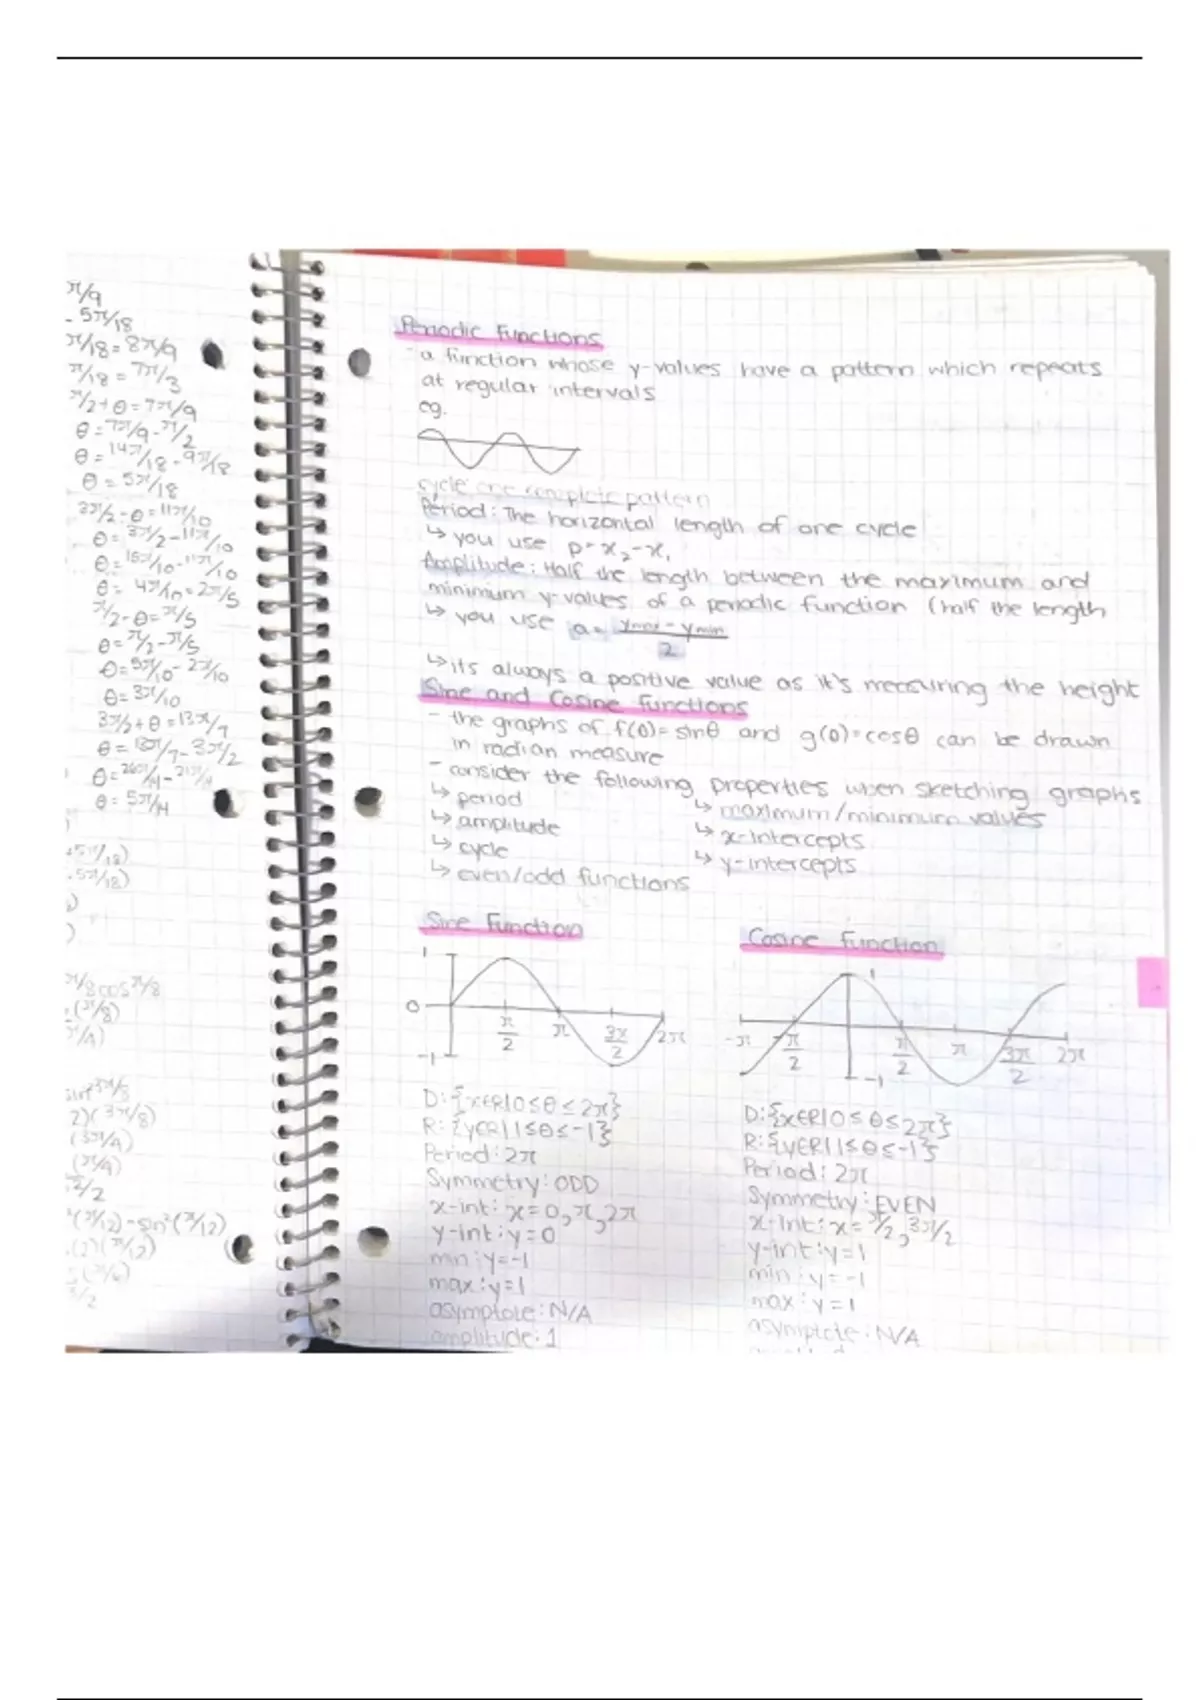 π/9
- 5π/18
π/18 = 8π/9
π/18 = 7π/3
π/2 + θ = 7π/9
θ = 7π/9 - π/2
θ = 14π/18 - 9π/18
θ = 5π/18
3π/2 - θ = 11π/10
θ = 3π/2 - 11π/10
θ = 15π/10 - 11π/10
θ = 4π/10 = 2π/5
π/2 - θ = π/5
θ = π/2 - π/5
θ = 5π/10 - 2π/10
θ = 3π/10
3π/2 + θ = 13π/7
θ = 13π/7 - 3π/2
θ = 26π/14 - 21π/14
θ = 5π/14
+5π/18)
5π/18)
π/8 cos π/8
(π/8)
π/4)
2)(3π/8)
(3π/4)
(π/4)
√2/2
²(π/12) - sin²(π/12)
(2)(π/12)
(π/6)
3/2
Periodic Functions
- a function whose y-values have a pattern which repeats
at regular intervals
eg.
cycle: one complete pattern
Period: The horizontal length of one cycle
↳ you use p = x₂ - x₁
Amplitude: Half the length between the maximum and
minimum y-values of a periodic function (half the length
↳ you use a = ymax - ymin
2
↳ its always a positive value as it's measuring the height
Sine and Cosine Functions
- the graphs of f(θ) = sinθ and g(θ) = cosθ can be drawn
in radian measure
- consider the following properties when sketching graphs
↳ period ↳ maximum/minimum values
↳ amplitude ↳ x-intercepts
↳ cycle ↳ y-intercepts
↳ even/odd functions
Sine Function
1
0
-1
π/2 π 3π/2 2π
D: {x∈R|0≤θ≤2π}
R: {y∈R|1≤θ≤-1}
Period: 2π
Symmetry: ODD
x-int: x=0, π, 2π
y-int: y=0
min: y=-1
max: y=1
asymptote: N/A
amplitude: 1
Cosine Function
1
-π -π/2 π/2 π 3π/2 2π
-1
D: {x∈R|0≤θ≤2π}
R: {y∈R|1≤θ≤-1}
Period: 2π
Symmetry: EVEN
x-int: x=π/2, 3π/2
y-int: y=1
min: y=-1
max: y=1
asymptote: N/A